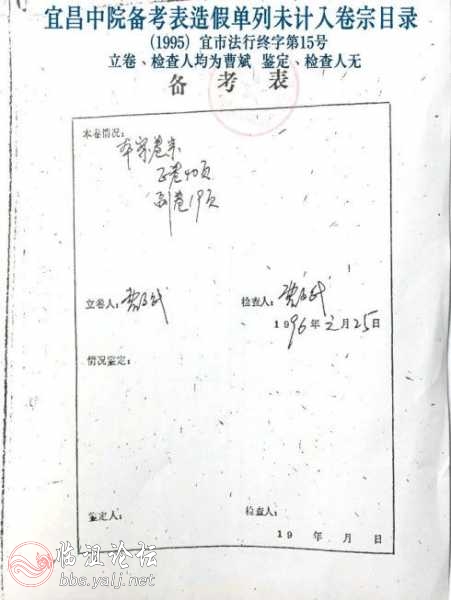 宜昌中院备考表造假单列未计入卷宗目录
(1995) 宜市法行终字第15号
立卷、检查人均为曹斌 鉴定、检查人无
备考表
本卷情况：
本宗卷宗
正卷40页
副卷19页
立卷人： 检查人：
1996年元月25日
情况鉴定：
鉴定人： 检查人：
19 年 月 日
临沮论坛
bbs.yalj.net